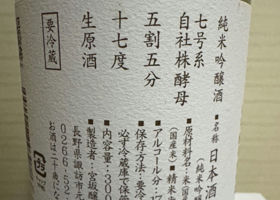 純米吟醸酒
七号系
自社株酵母
五割五分
十七度
生原酒
要冷蔵
■名称 日本酒
(純米吟醸
■原材料名:米(国
(国産米) ■精米
■アルコール分:17
■保存方法:要冷
必ず冷蔵庫で保
■内容量:300
■製造者:宮坂醸
長野県諏訪市元
0266-52-
お酒は二十歳にな
紙